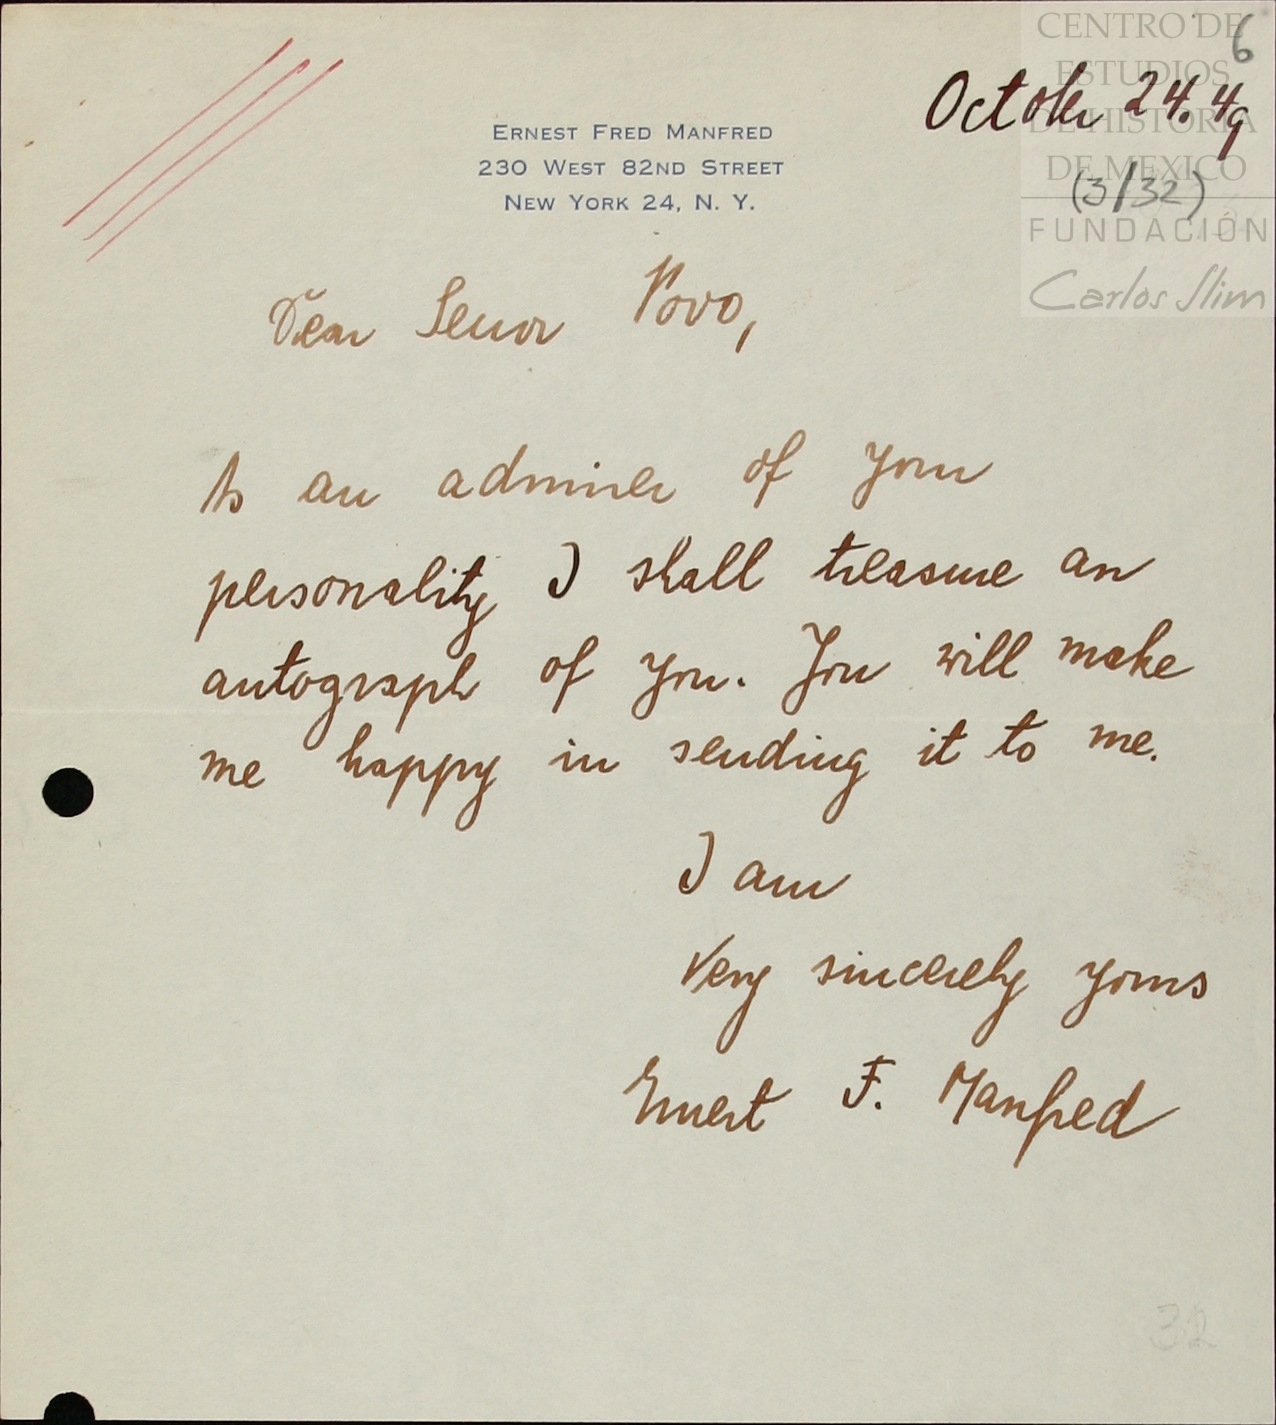 6
CENTRO DE
ESTUDIOS
DE HISTORIA
DE MEXICO
FUNDACIÓN
Carlos Slim
October 24. 49
(3/32)
ERNEST FRED MANFRED
230 WEST 82ND STREET
NEW YORK 24, N. Y.
Dear Senor Novo,
As an admirer of your
personality I shall treasure an
autograph of you. You will make
me happy in sending it to me.
I am
Very sincerely yours
Ernest F. Manfred
32